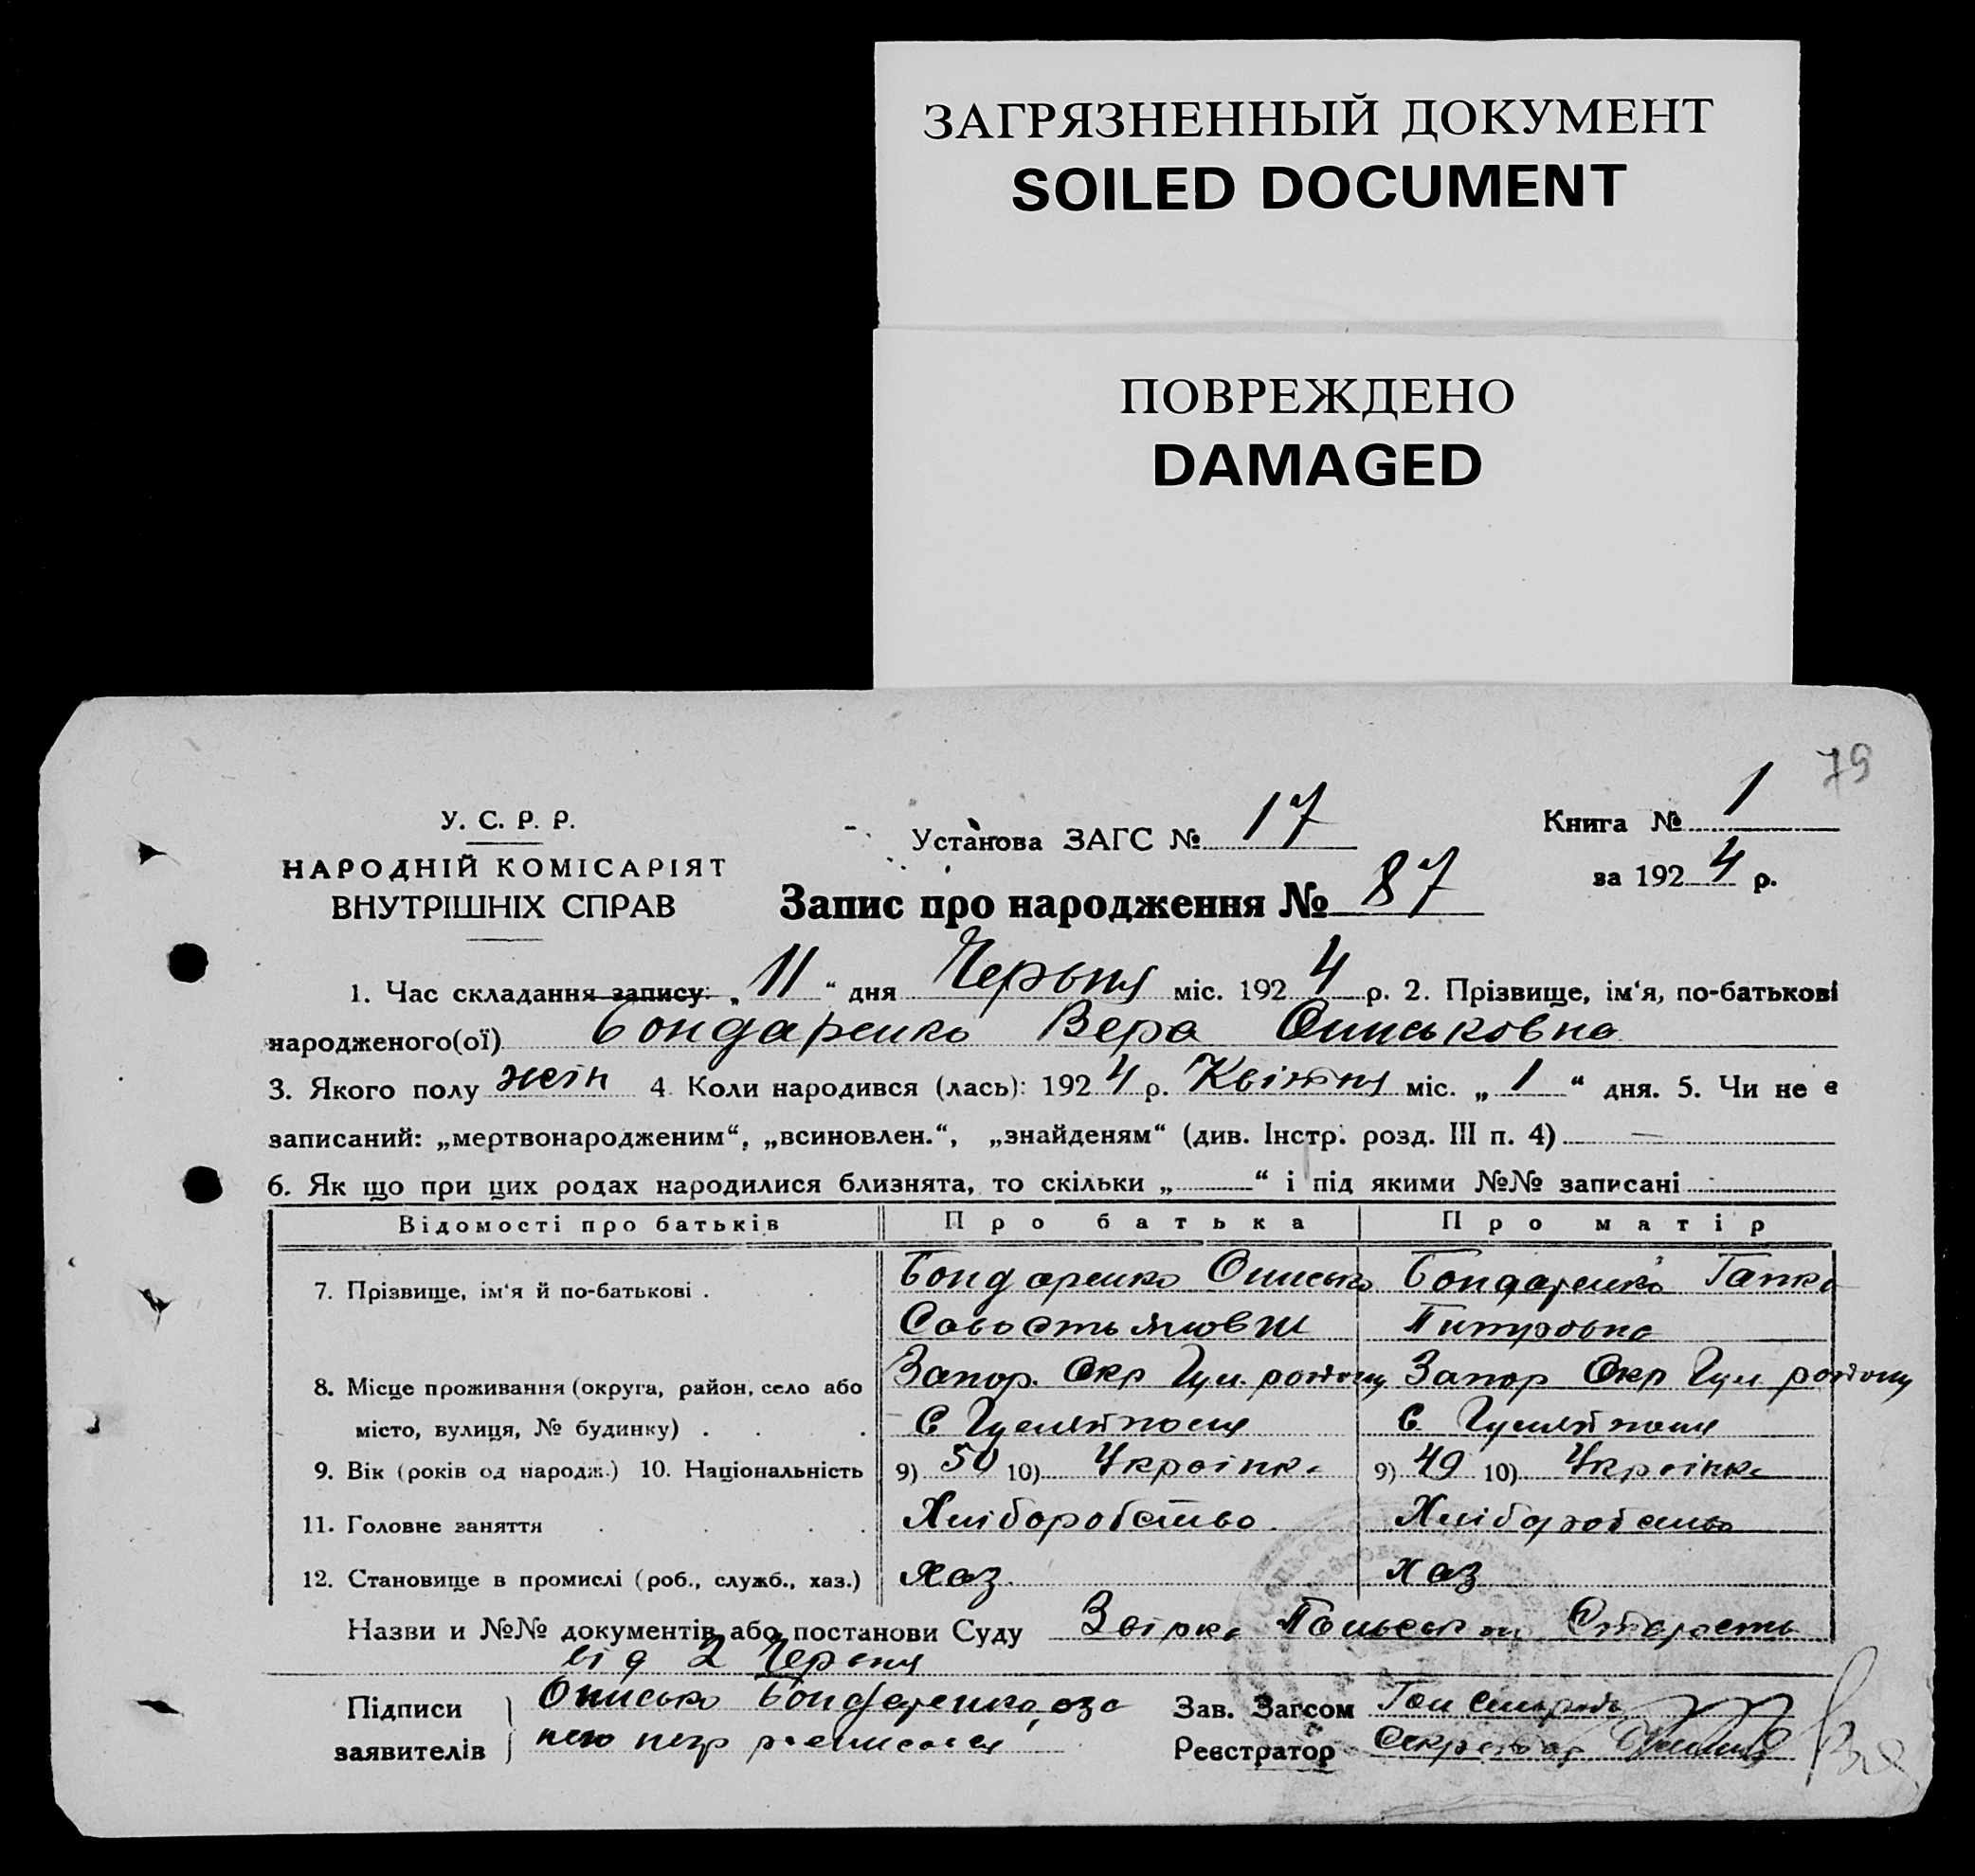 ЗАГРЯЗНЕННЫЙ ДОКУМЕНТ
SOILED DOCUMENT
ПОВРЕЖДЕНО
DAMAGED
79
У. С. Р. Р.
НАРОДНІЙ КОМІСАРІЯТ
ВНУТРІШНІХ СПРАВ
Установа ЗАГС № 17
Книга № 1
за 1924 р.
Запис про народження № 87
1. Час складання запису: „11“ дня Червня міс. 1924 р. 2. Прізвище, ім‘я, по-батькові
народженого(ої) Бондаренко Вера Ониськовна
3. Якого полу жін 4. Коли народився (лась): 1924 р. Квітня міс. „1“ дня. 5. Чи не є
записаний: „мертвонародженим“, „всиновлен.“, „знайденям“ (див. Інстр. розд. III п. 4) —
6. Як що при цих родах народилися близнята, то скільки „ “ і під якими №№ записані
Відомості про батьків Про батька Про матір
7. Прізвище, ім‘я й по-батькові . Бондаренко Онисько Бондаренко Гапка
Савостьянович Питровна
8. Місце проживання (округа, район, село або Запор. Окр Гул. району Запор Окр Гул району
місто, вулиця, № будинку) . . . С Гуляйполя С. Гуляйполя
9. Вік (років од народж.) 10. Національність 9) 50 10) Украінка 9) 49 10) Украінка
11. Головне заняття . . . . Хліборобство. Хліборобство
12. Становище в промислі (роб., служб., хаз.) хаз. хаз
Назви и №№ документів або постанови Суду
від 2 Червня
Підписи Онисько Бондаренко, аза
заявителів него
Зав. Загсом
Реєстратор Секретар